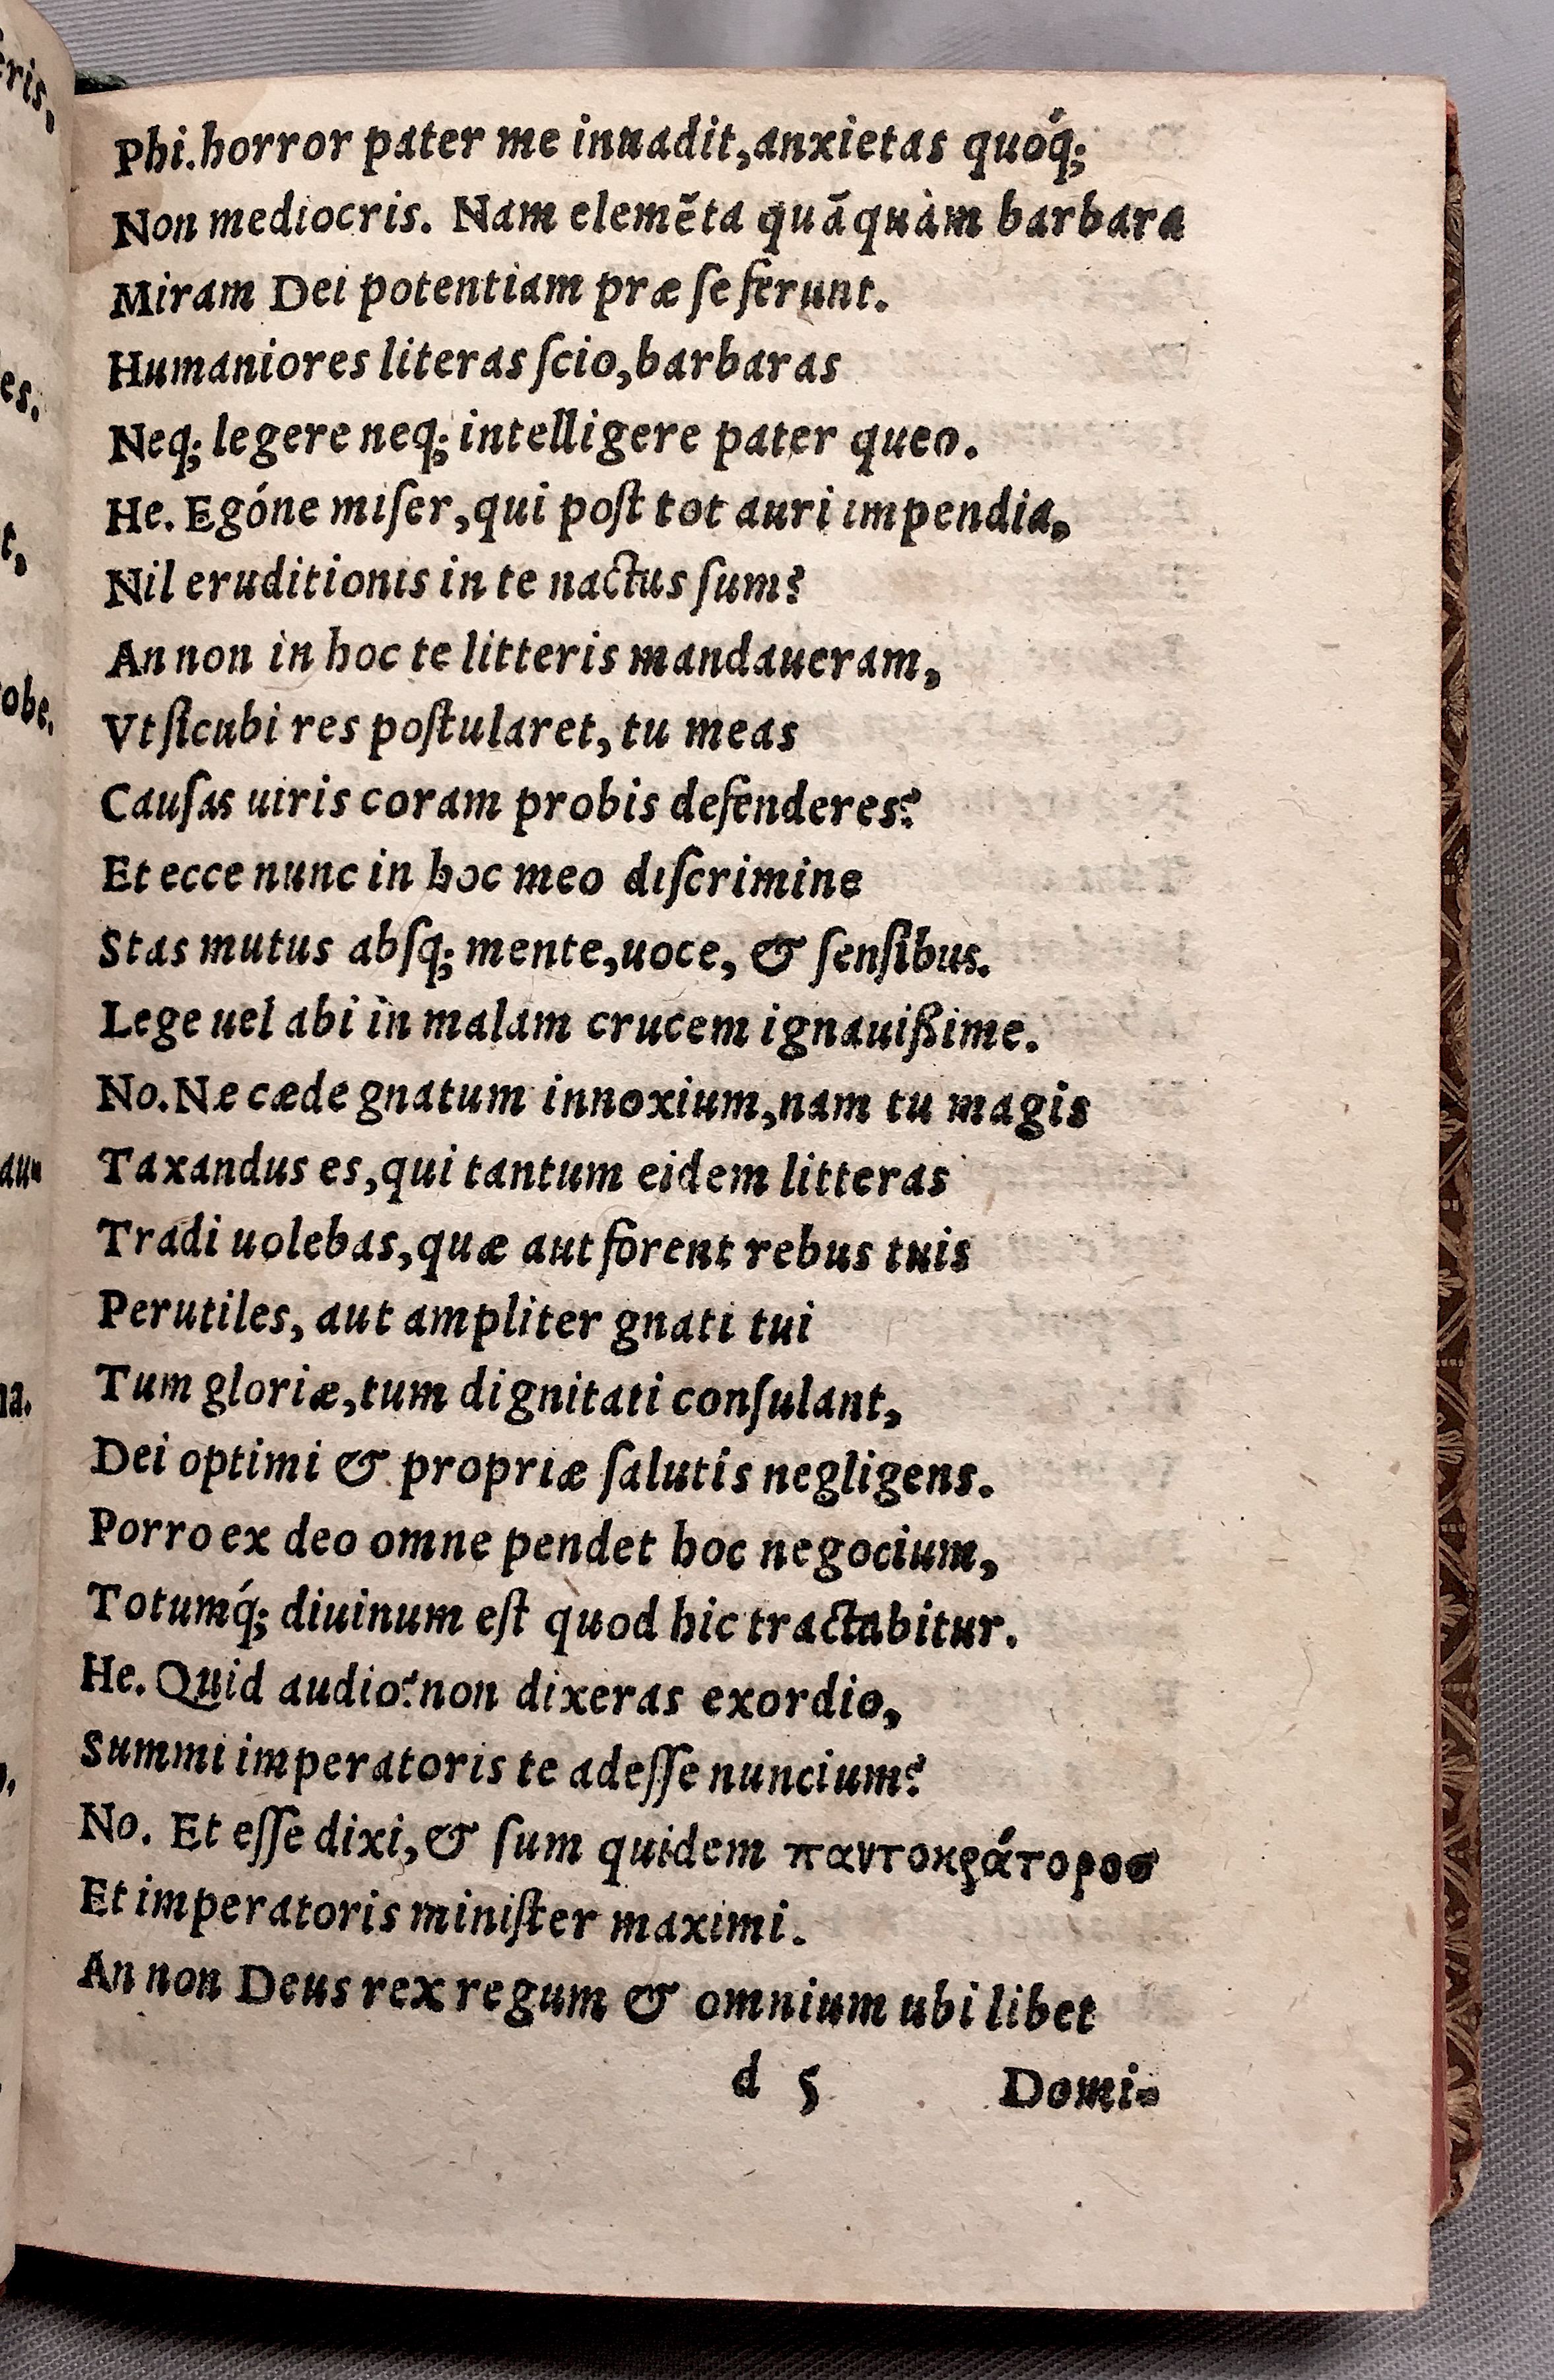 Phi. horror pater me inuadit, anxietas quoq́;
Non mediocris. Nam elemẽta quãquàm barbara
Miram Dei potentiam præ ſe ferunt.
Humaniores literas ſcio, barbaras
Neq; legere neq; intelligere pater queo.
He. Egóne miſer, qui poſt tot auri impendia,
Nil eruditionis in te nactus ſum?
An non in hoc te litteris mandaueram,
Vt ſicubi res poſtularet, tu meas
Cauſas uiris coram probis defenderes?
Et ecce nunc in hoc meo diſcrimine
Stas mutus abſq; mente, uoce, & ſenſibus.
Lege uel abi in malam crucem ignauißime.
No. Næ cæde gnatum innoxium, nam tu magis
Taxandus es, qui tantum eidem litteras
Tradi uolebas, quæ aut forent rebus tuis
Perutiles, aut ampliter gnati tui
Tum gloriæ, tum dignitati conſulant,
Dei optimi & propriæ ſalutis negligens.
Porro ex deo omne pendet hoc negocium,
Totumq́; diuinum eſt quod hic tractabitur.
He. Quid audio? non dixeras exordio,
Summi imperatoris te adeſſe nuncium?
No. Et eſſe dixi, & ſum quidem παντοκράτοροσ
Et imperatoris miniſter maximi.
An non Deus rex regum & omnium ubi libet
d 5 Domi-